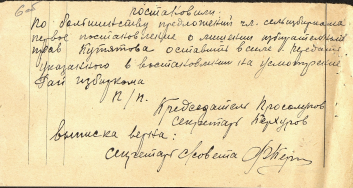 6об
постановили:
по большинству предложений чл. сельизбиркома
первое постановление о лишении избирательных
прав Кутятова оставить в силе и передать
указанного в постановлении на усмотрение
Рай избиркома
п/п.
Председатель
секретарь
выписка верна:
секретарь совета